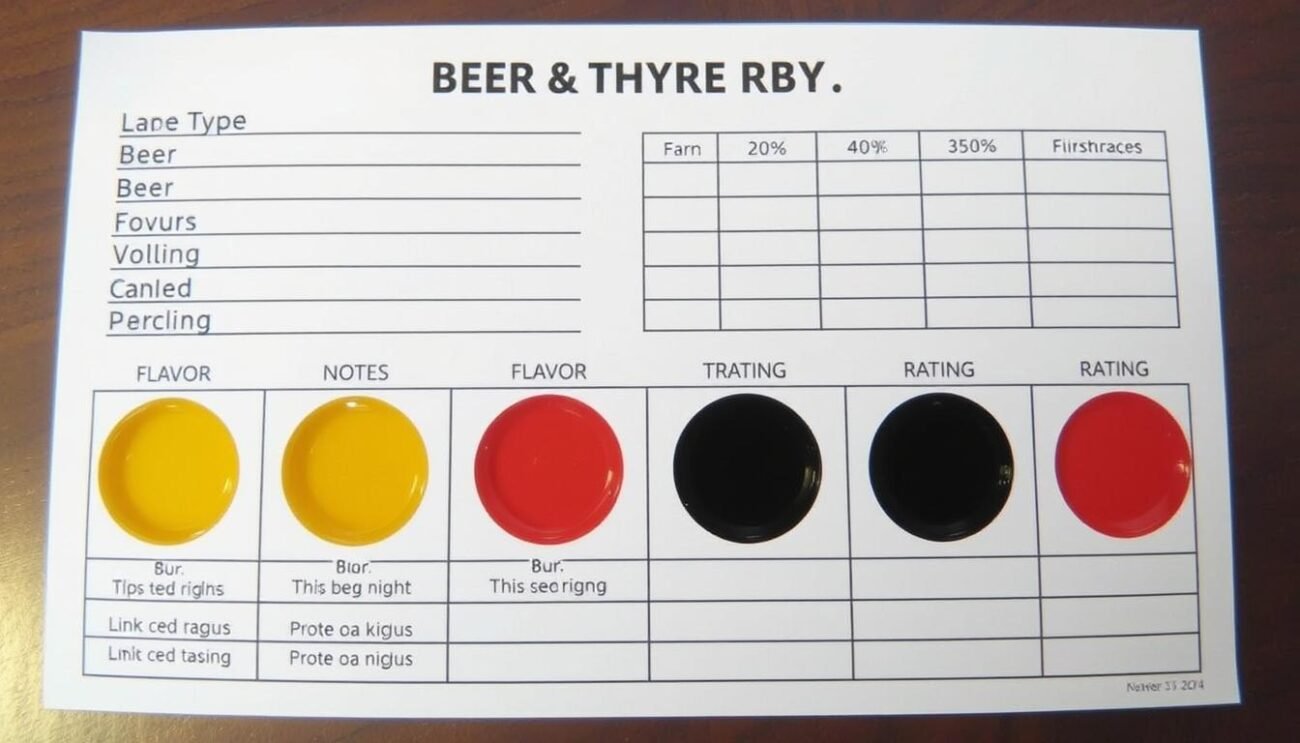 BEER & THYRE RBY.
Lane Type
Beer
Beer
Fovurs
Volling
Canled
Percling
Farn 20% 40% 350% Fiirshraces
FLAVOR NOTES FLAVOR TRATING RATING RATING
Bur. Blor. Bur.
Tlps ted riglns This beg night This seorigng
Link ced ragus Prote oa kigus
Lmit ced tasing Prote oa nigus